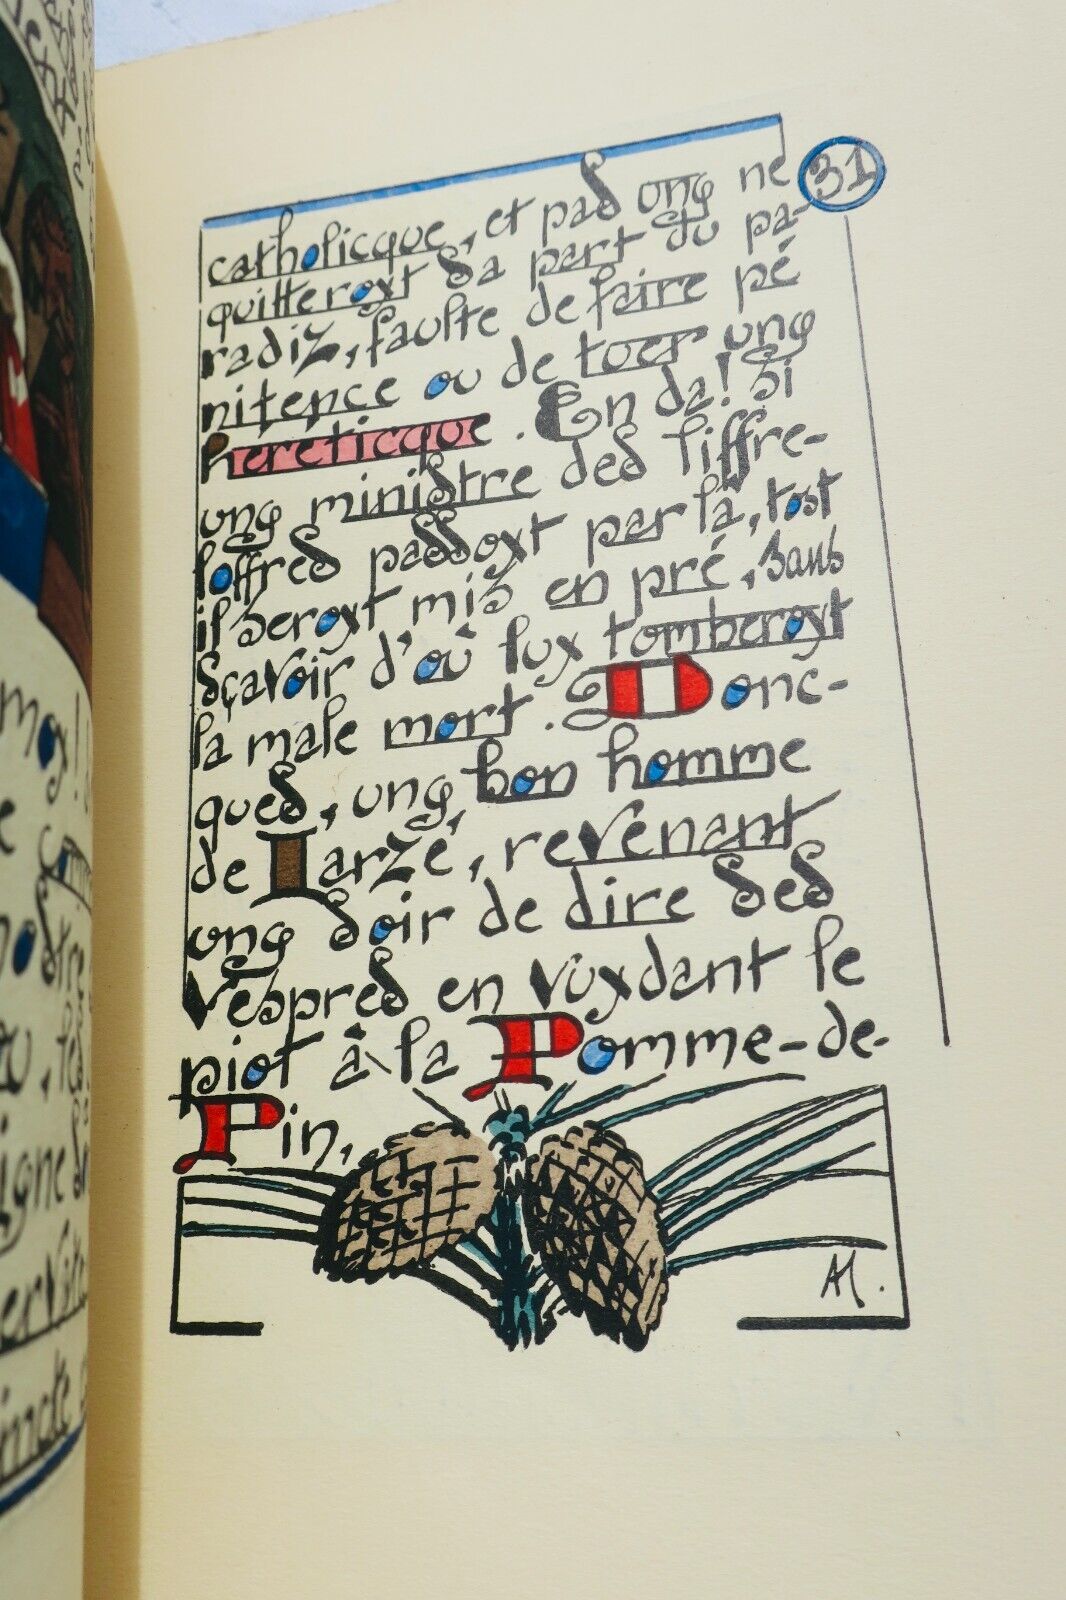 31
catholicque, et pas ung ne
quitteroyt sa part du pa-
radiz, faulte de faire pé
nitence ou de tuer ung
hereticque. En da! Si
ung ministre des liffre-
loffres passoyt par là, tost
il seroyt miz en pré, sans
sçavoir d'où luy tomberoyt
la male mort. Donc-
ques, ung, bon homme
de Larzé, revenant
ung soir de dire ses
vespres en vuydant le
piot à la Pomme-de-
Pin,
AM.